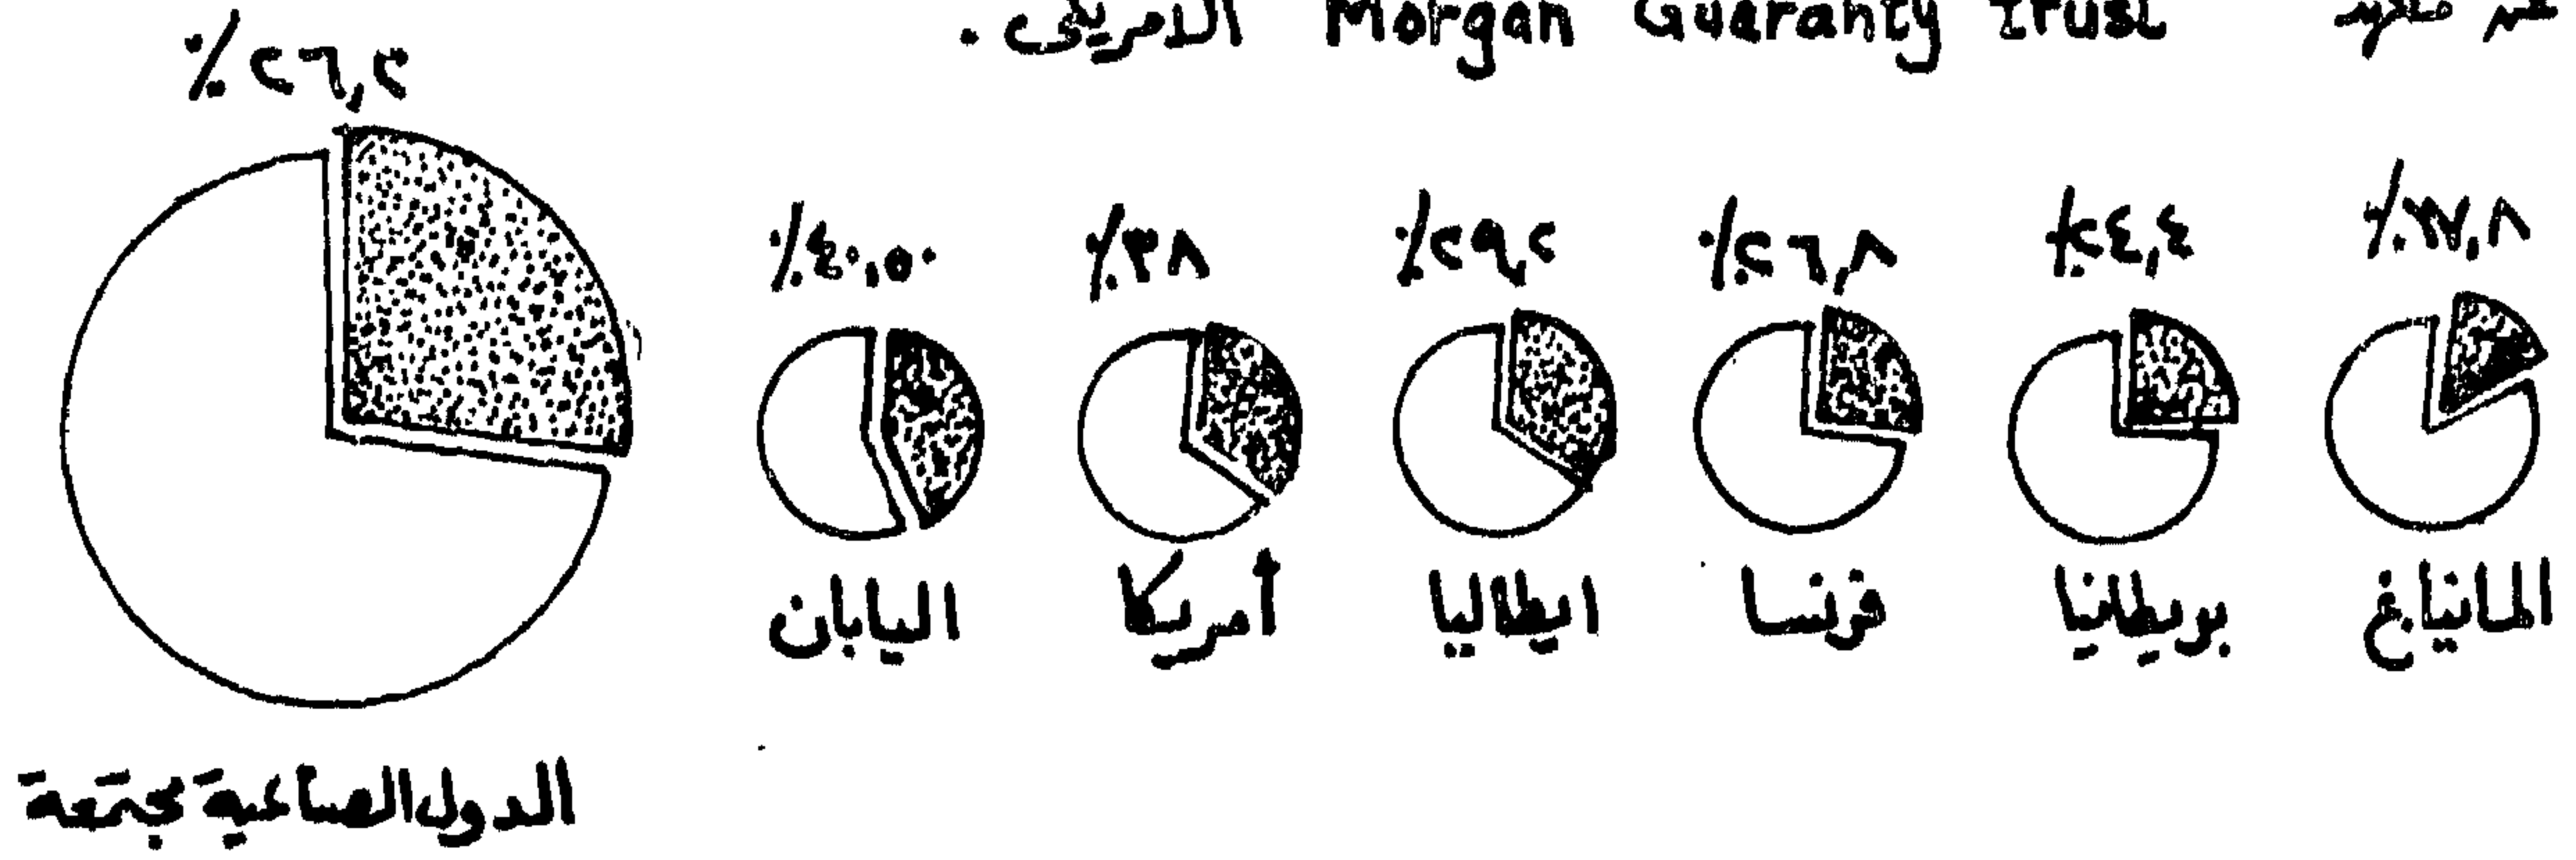 Morgan Guaranty trust الامريكى .
٢٦,٢٪
١٧,٨٪ ٢٤,٤٪ ٢٦,٨٪ ٢٩,٢٪ ٣٨٪ ٤٠,٥٠٪
المانيا غ بريطانيا فرنسا ايطاليا أمريكا اليابان
الدول الصناعية مجتمعة